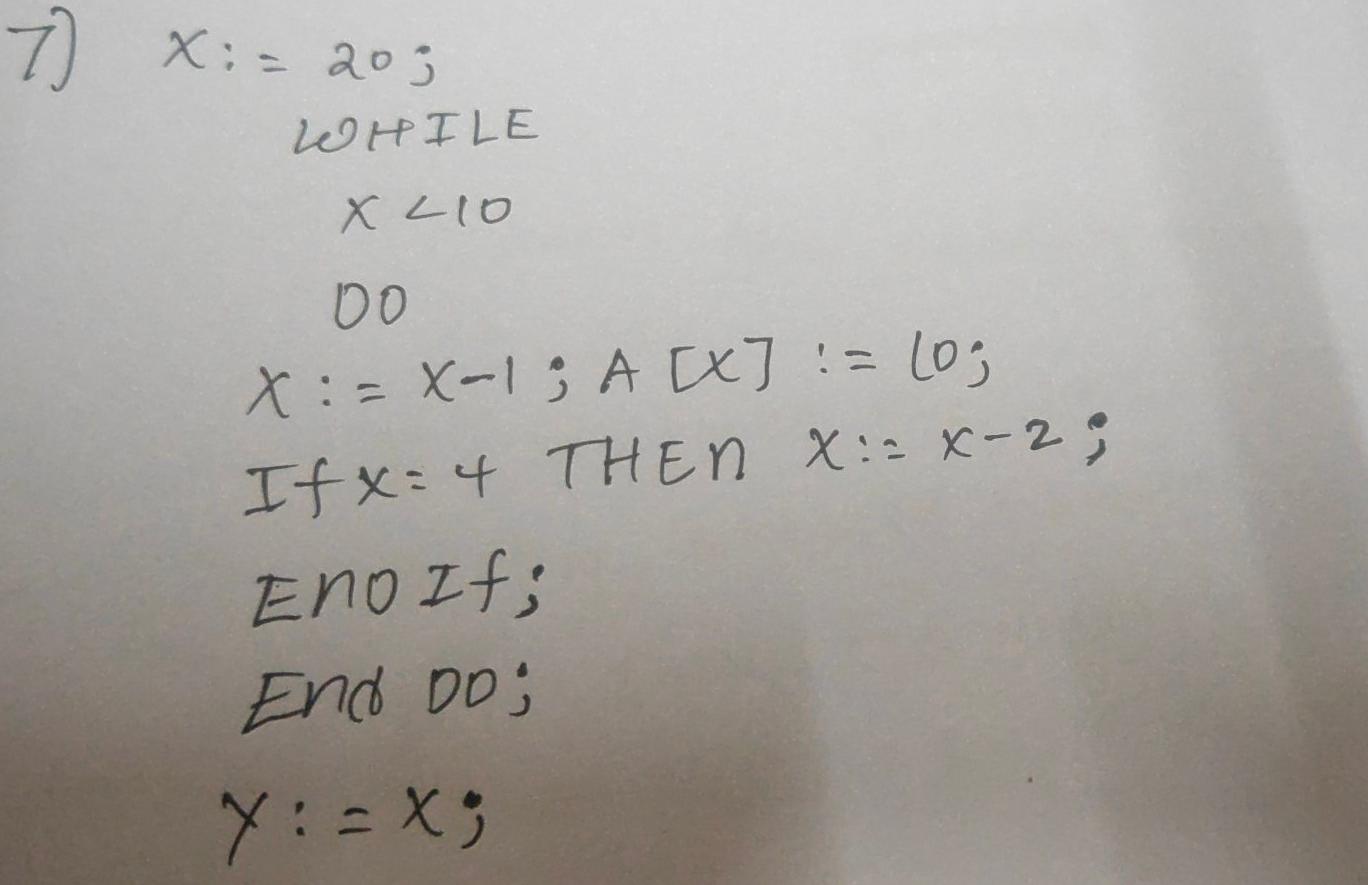 7) X := 20;
WHILE
X <10
DO
X := X-1; A [X] := 10;
If X=4 THEn X:= X-2;
EnD If;
End DO;
Y := X;